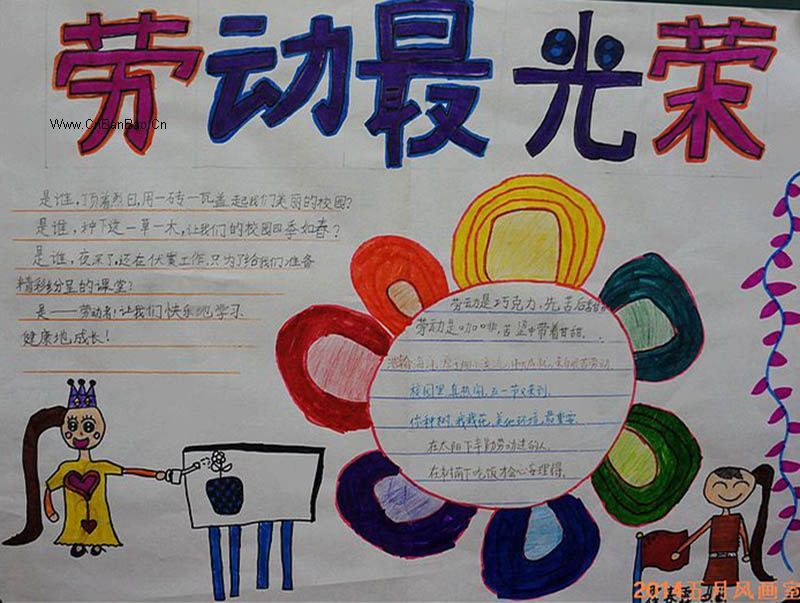 劳动最光荣
Www.CnBanBao.Cn
是谁，顶着烈日，用一砖一瓦盖起我们美丽的校园？
是谁，种下这一草一木，让我们的校园四季如春？
是谁，夜深了，还在伏案工作，只为了给我们准备
精彩纷呈的课堂？
是——劳动者！让我们快乐地学习
健康地成长！
劳动是巧克力，先苦后
劳动是咖啡，苦涩中带着甘甜．
校园里真热闹，五一节又来到．
你种树，我栽花，美化环境
在太阳下辛勤劳动过的人，
在树荫下吃饭才会心安理得．
2014五月风画室